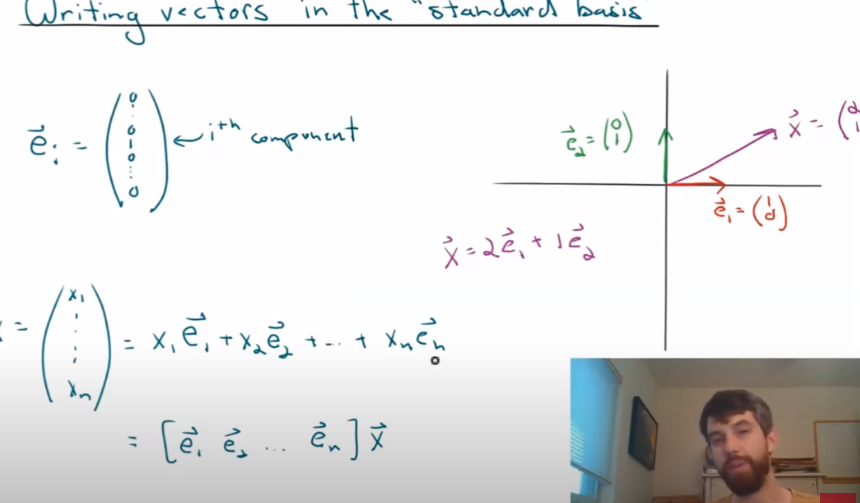 Writing vectors in the "standard basis"
e⃗ᵢ = (0 ⋮ 0 1 0 ⋮ 0) ← iᵗʰ component
e⃗₂ = (0 1)
x⃗ = (2 1
e⃗₁ = (1 d)
x⃗ = 2e⃗₁ + 1e⃗₂
= (x₁ ⋮ xₙ) = x₁e⃗₁ + x₂e⃗₂ + ... + xₙe⃗ₙ
= [e⃗₁ e⃗₂ ... e⃗ₙ]x⃗